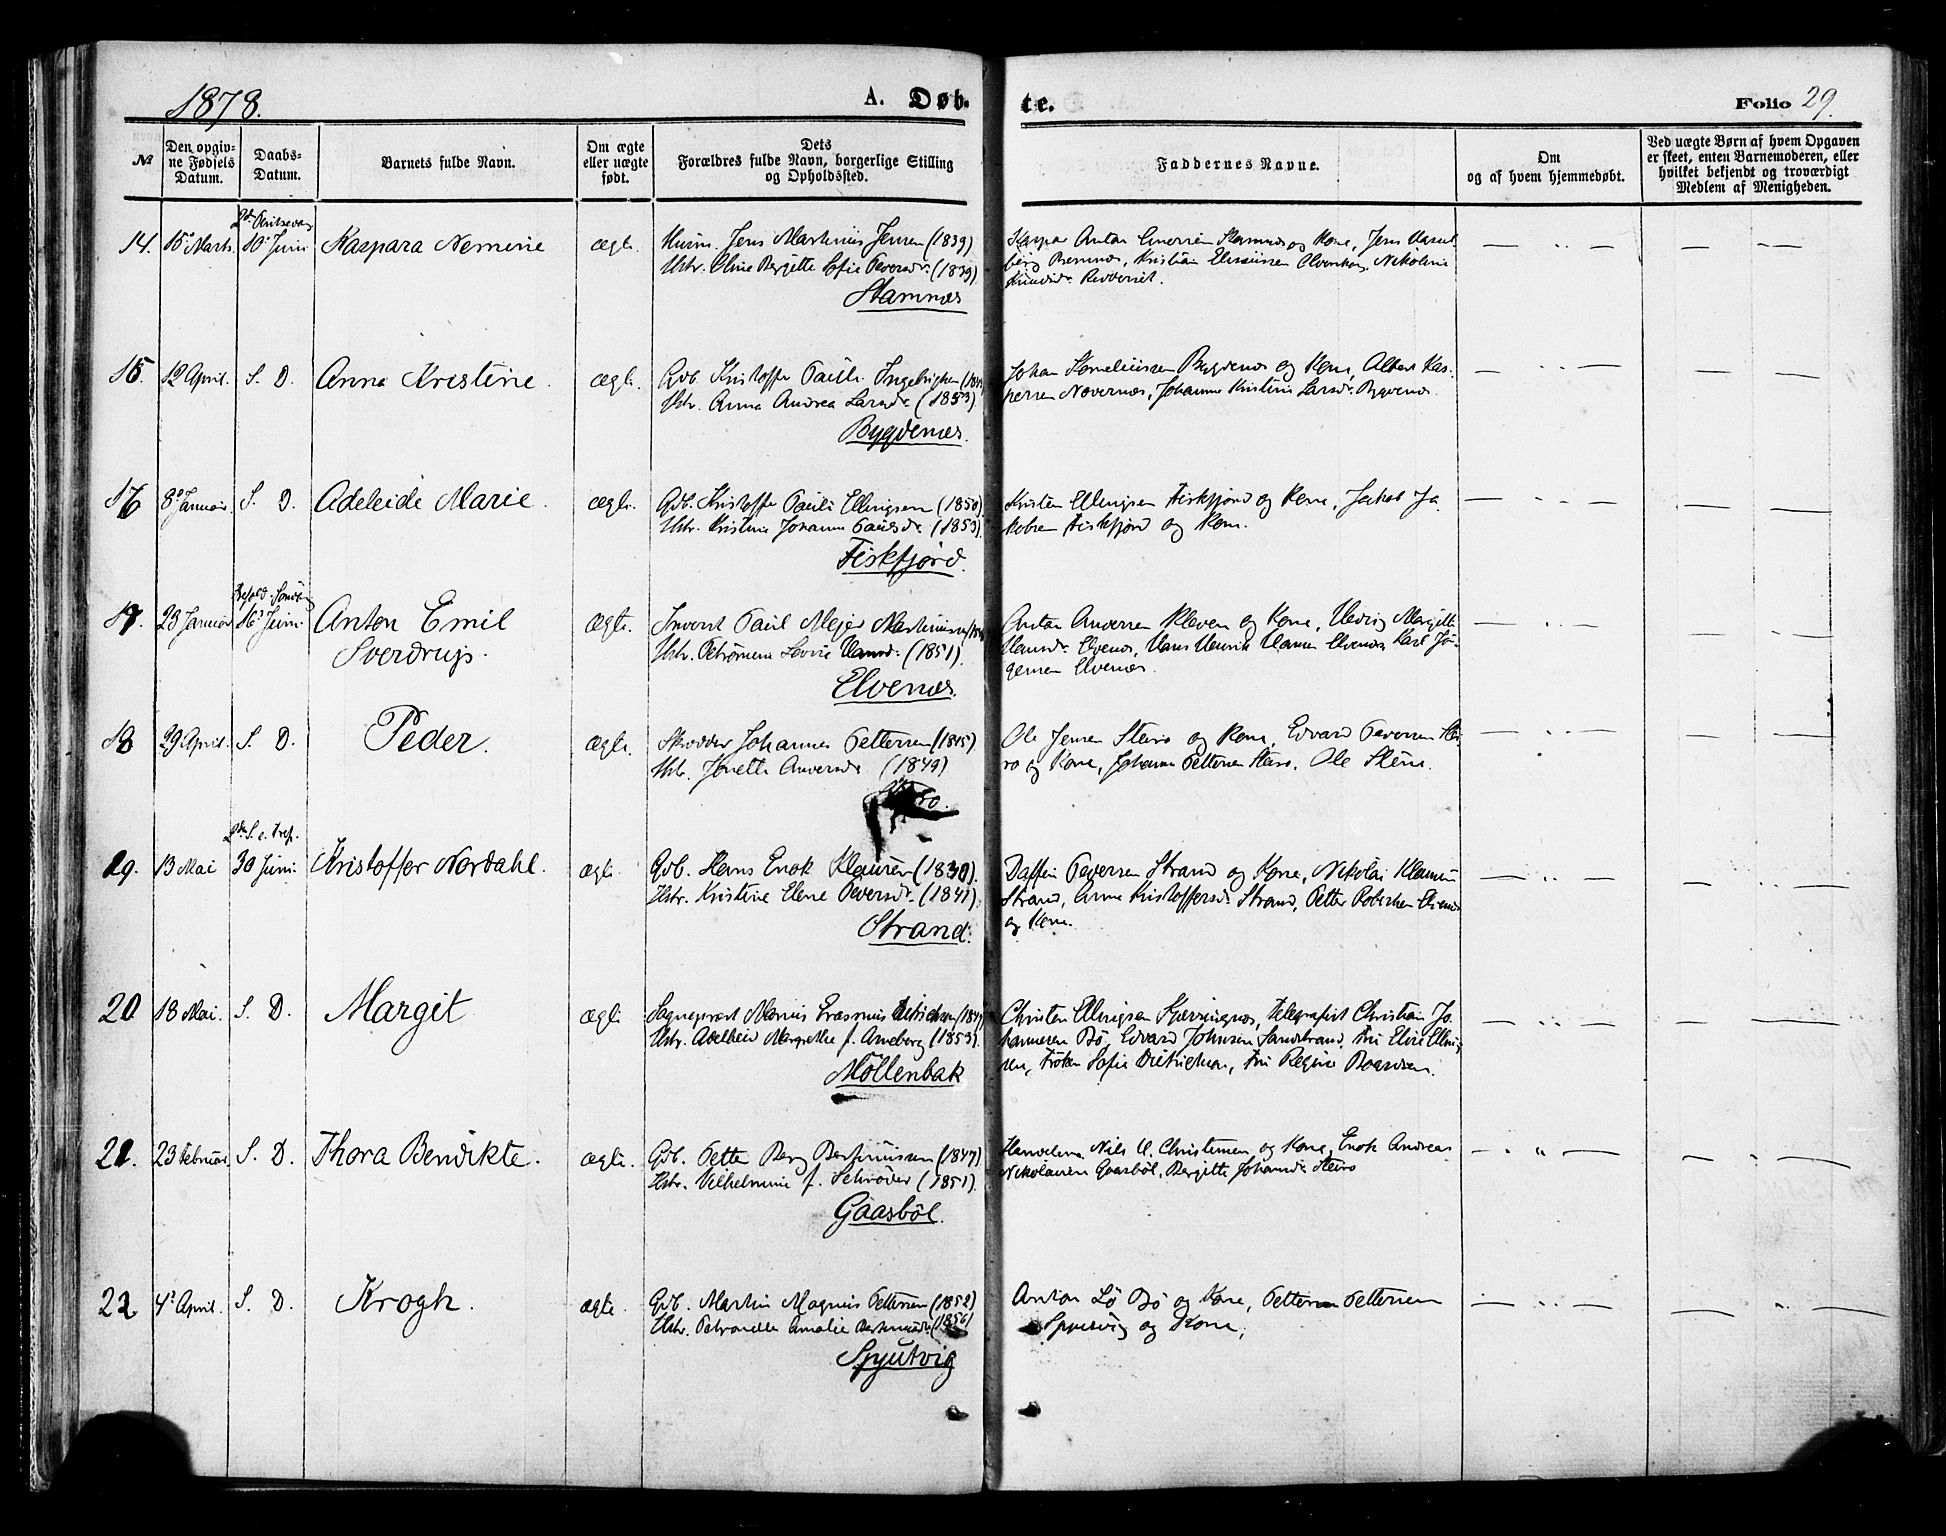 1878.
A. Døb-
te.
Folio 29.
№
Den opgiv-
ne Fødsels
Datum.
Daabs-
Datum.
Barnets fulde Navn.
Om ægte
eller uægte
født.
Dets
Forældres fulde Navn, borgerlige Stilling
og Opholdssted.
Faddernes Navne.
Om
og af hvem hjemmedøbt.
Ved uægte Børn af hvem Opgaven
er skeet, enten Barnemoderen, eller
hvilket bekjendt og troværdigt
Medlem af Menigheden.
14. 15 Marts. 10 Juni Kaspara Nemerie ægte. Jens Martinius Jensen (1839)
Hstr. Oline Bergitte Sofie Pedersdr. (1839)
Stamnæs
Kaspar Anton Stamnæs og Kone, Jens
Kristian Nikoline
15. 12 April. S. D. Anna Kristine. ægte. Gdb. Kristoffer Pauli Ingebrigtsen
Hstr. Anna Andrea Larsdr. (1853)
Bygdenæs.
Johan Kornelius Bygdenæs og Kone, Albert Kas-
persen Johanna Kristine Larsdr. Bygdenæs.
16 8 Januar. S. D. Adeleide Marie. ægte. Gdb. Kristoffer Pauli Ellingsen (1850)
Hstr. Kristine Johanna Paulsdr. (1853)
Fiskfjord.
Kristen Ellingsen Fiskfjord og Kone, Jakob Ja-
kobsen Fiskfjord og Kone.
17. 23 Januar 16 Juni. Anton Emil
Sverdrup. ægte. Inderst Paul Mejer Martiniussen
Hstr. Lovise Hansdr. (1851).
Elvenæs.
Anton Andersen Kleven og Kone, Hedvig
Hansdr. Elvenæs, Hans Henrik Hansen Elvenæs, Karl Jør-
gensen Elvenæs.
18 29 April. S. D. Peder. ægte. Skredder Johannes Pettersen (1845)
Hstr. Jonette Andersdr. (1849)
Ole Jensen Steiro og Kone, Edvard Pedersen Stei-
ro og Kone, Johanna Pettersen Steiro. Ole
19. 13 Mai 2den S. e. Tref.
30 Juni. Kristoffer Nordahl. ægte. Gdb. Hans Enok Klausen (1840).
Hstr. Kristine Elene Pedersdr. (1841)
Strand.
Daffin Pedersen Strand og Kone, Nikolai Klausen
Strand, Anne Kristoffersdr. Strand, Petter
og Kone.
20 18 Mai. S. D. Margit ægte Sogneprest Marius Erasmus Dietrichson
Hstr. Adelheid Margrethe f. Arneberg (1853).
Möllenbak
Christen Ellingsen Skjerringnæs, Telegrafist Christian Jo-
hannesen Bö, Edvard Johnsen Sandstrand, Fru Elise Elling-
sen, Frøken Sofie Dietrichson, Fru Regine
21. 23 Februar. S. D. Thora Bendikte. ægte. Gdb. Petter Berg Bertinussen (1847)
Hstr. Vilhelmine f. Schrøder (1851).
Gaasböl.
Nils Christensen og Kone, Enok Andreas
Nikolaisen Gaasböl, Bergitte Johansdr. Steiro
22. 4 April. S. D. Krogh. ægte. Gdb. Martin Magnus Pettersen (1852)
Hstr. Petronella Amalie (1856)
Spjutvig
Anton Lö Bö og Kone, Petter Pettersen
Spjutvig og Kone,